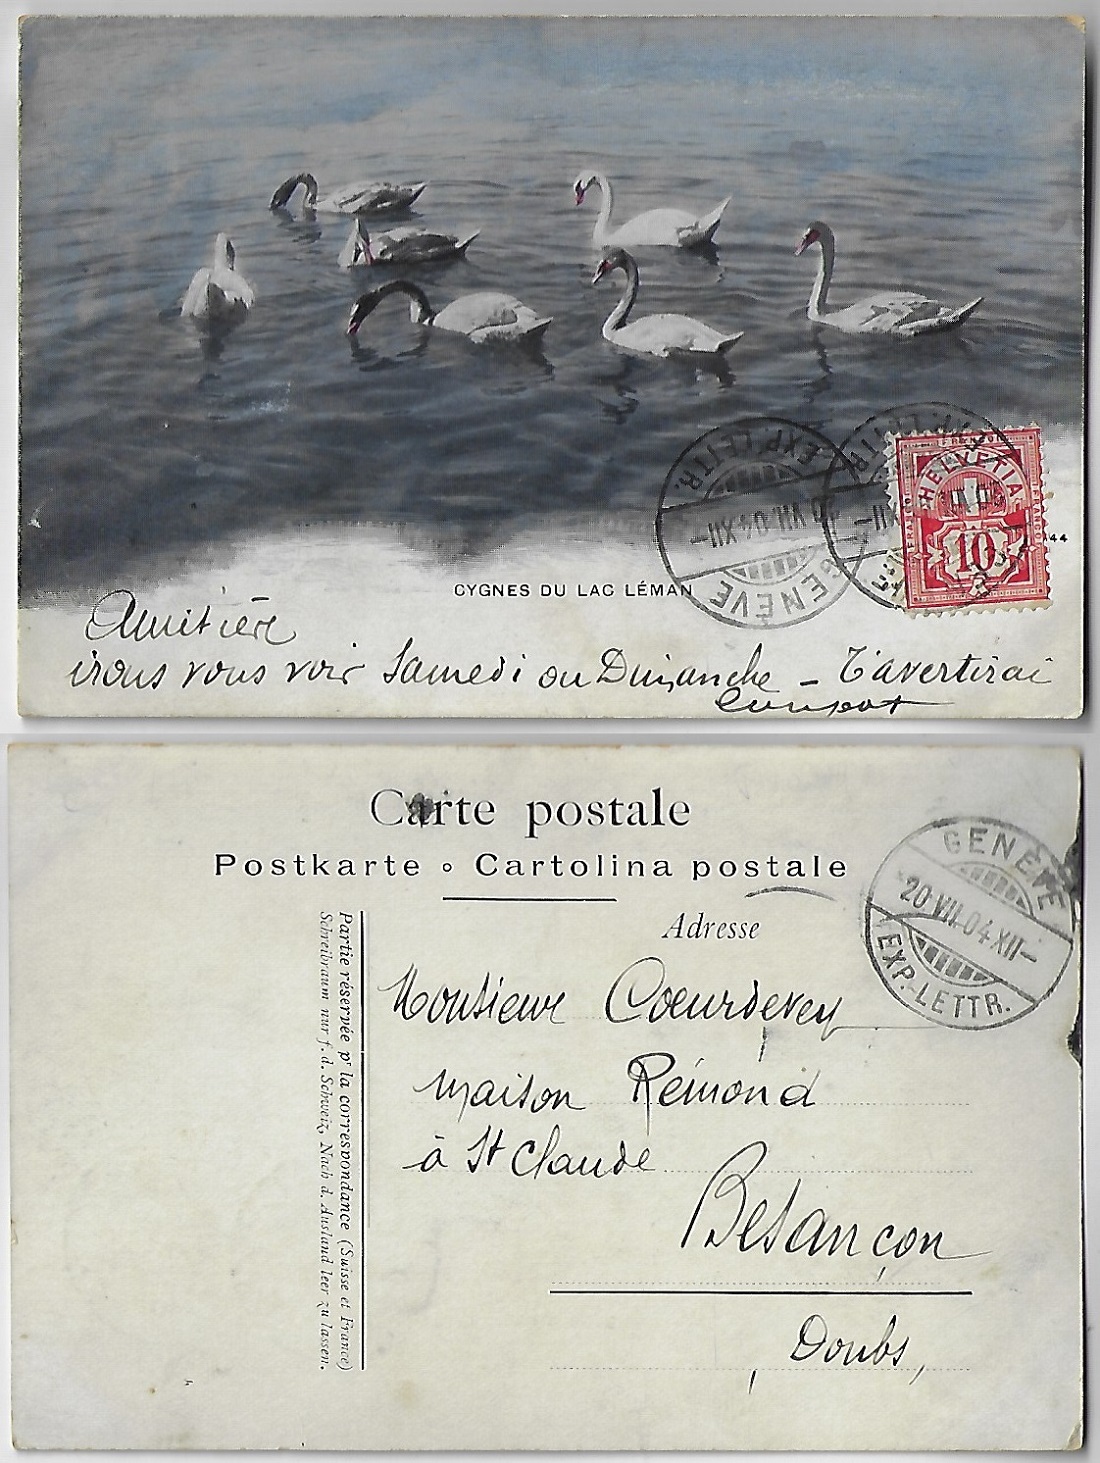 CYGNES DU LAC LÉMAN
44
GENÈVE
VII.04 XII–
EXP. LETTR.
HELVETIA
FRANCO
FRANCO
10
irons vous voir Samedi ou Dimanche – T'avertirai
Carte postale
Postkarte ∘ Cartolina postale
Adresse
GENÈVE
20 VII.04 XII–
EXP. LETTR.
Partie réservée pr la correspondance (Suisse et France)
Schreibraum nur f. d. Schweiz, Nach d. Ausland leer zu lassen.
Monsieur Coeurdevey
maison Rémond
à St Claude
Besançon
Doubs,